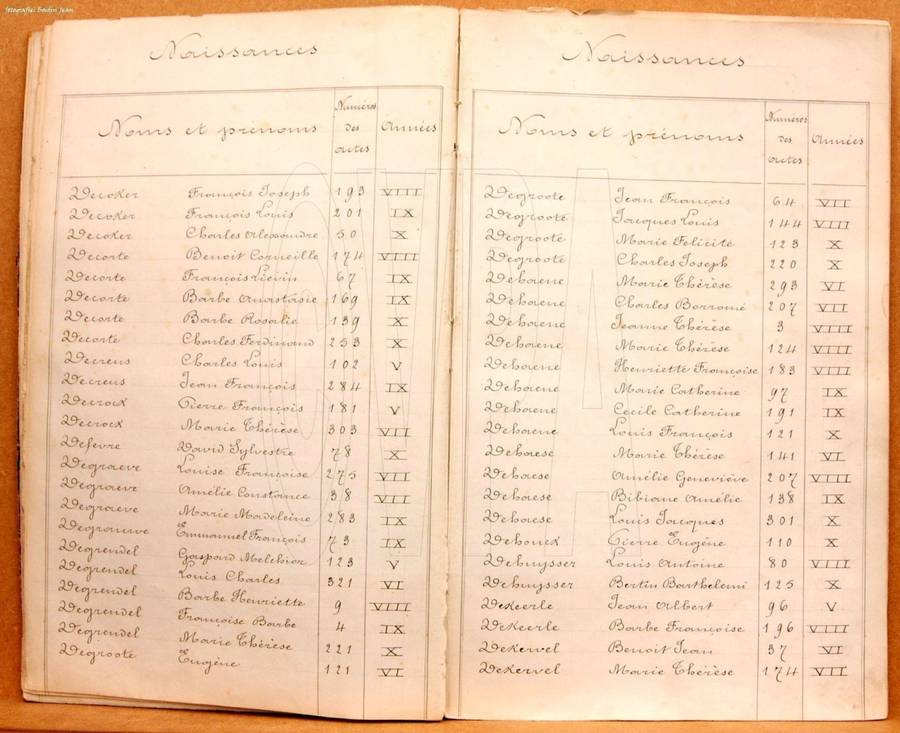 fotografie: Boutin Jean
Naissances
Noms et prénoms Numéros des actes Années
Decoker François Joseph 193 VIII
Decoker François Louis 201 IX
Decoker Charles Alexandre 50 X
Decorte Benoit Corneille 174 VIII
Decorte François Liévin 67 IX
Decorte Barbe Anastasie 169 IX
Decorte Barbe Rosalie 139 X
Decorte Charles Ferdinand 253 X
Decreus Charles Louis 102 V
Decreus Jean François 284 IX
Decrock Pierre François 181 V
Decrock Marie Thérèse 303 VII
Defevre David Sylvestre 78 X
Degraeve Louise Françoise 275 VII
Degraeve Amélie Constance 38 VII
Degraeve Marie Madeleine 283 IX
Degrauwe Emmanuel François 73 IX
Degrendel Gaspard Melchior 123 V
Degrendel Louis Charles 321 VI
Degrendel Barbe Henriette 9 VIII
Degrendel Françoise Barbe 4 IX
Degrendel Marie Thérèse 221 X
Degroote Eugène 121 VI
Naissances
Noms et prénoms Numéros des actes Années
Degroote Jean François 64 VII
Degroote Jacques Louis 144 VIII
Degroote Marie Félicité 123 X
Degroote Charles Joseph 220 X
Dehaene Marie Thérèse 293 VI
Dehaene Charles Borromé 207 VII
Dehaene Jeanne Thérèse 3 VIII
Dehaene Marie Thérèse 124 VIII
Dehaene Henriette Françoise 183 VIII
Dehaene Marie Catherine 97 IX
Dehaene Cécile Catherine 191 IX
Dehaene Louis François 121 X
Dehaese Marie Thérèse 141 VI
Dehaese Amélie Geneviève 207 VIII
Dehaese Bibiane Amélie 138 IX
Dehaese Louis Jacques 301 X
Dehouck Pierre Eugène 110 X
Dehuysser Louis Antoine 80 VIII
Dehuysser Bertin Barthelemi 125 X
DeKeerle Jean Albert 96 V
DeKeerle Barbe Françoise 196 VIII
DeKervel Benoit Jean 37 VI
DeKervel Marie Thérèse 174 VII